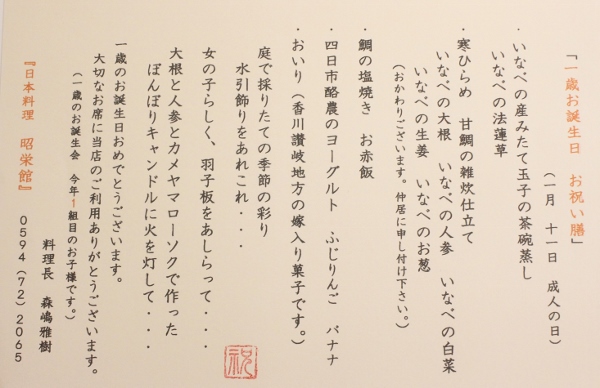 「一歳お誕生日　お祝い膳」
（一月　十一日　成人の日）
・いなべの産みたて玉子の茶碗蒸し
いなべの法蓮草
・寒ひらめ　甘鯛の雑炊仕立て
いなべの大根　いなべの人参　いなべの白菜
いなべの生姜　いなべのお葱
（おかわりございます。仲居に申し付け下さい。）
・鯛の塩焼き　お赤飯
・四日市酪農のヨーグルト　ふじりんご　バナナ
・おいり（香川讃岐地方の嫁入り菓子です。）
庭で採りたての季節の彩り
水引飾りをあれこれ・・・
女の子らしく、羽子板をあしらって・・・
大根と人参とカメヤマローソクで作った
ぼんぼりキャンドルに火を灯して・・・
一歳のお誕生日おめでとうございます。
大切なお席に当店のご利用ありがとうございます。
（一歳のお誕生会　今年1組目のお子様です。）
料理長　森嶋雅樹
『日本料理　昭栄館』　0594(72)2065
祝